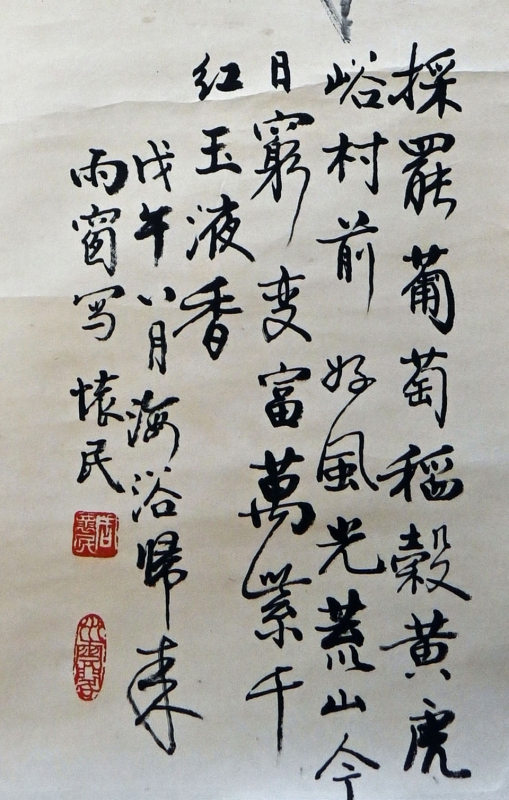 採罷葡萄稻穀黄虎
峪村前好風光荒山今
日窮变富萬紫千
红玉液香
戊午八月海浴歸来
雨窗写懐民